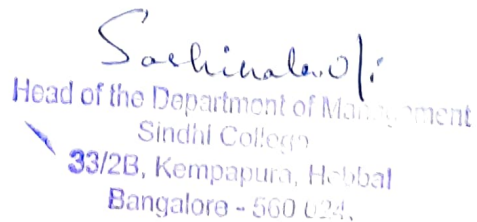 Head of the Department of Management
Sindhi College
33/2B, Kempapura, Hebbal
Bangalore - 560 024.